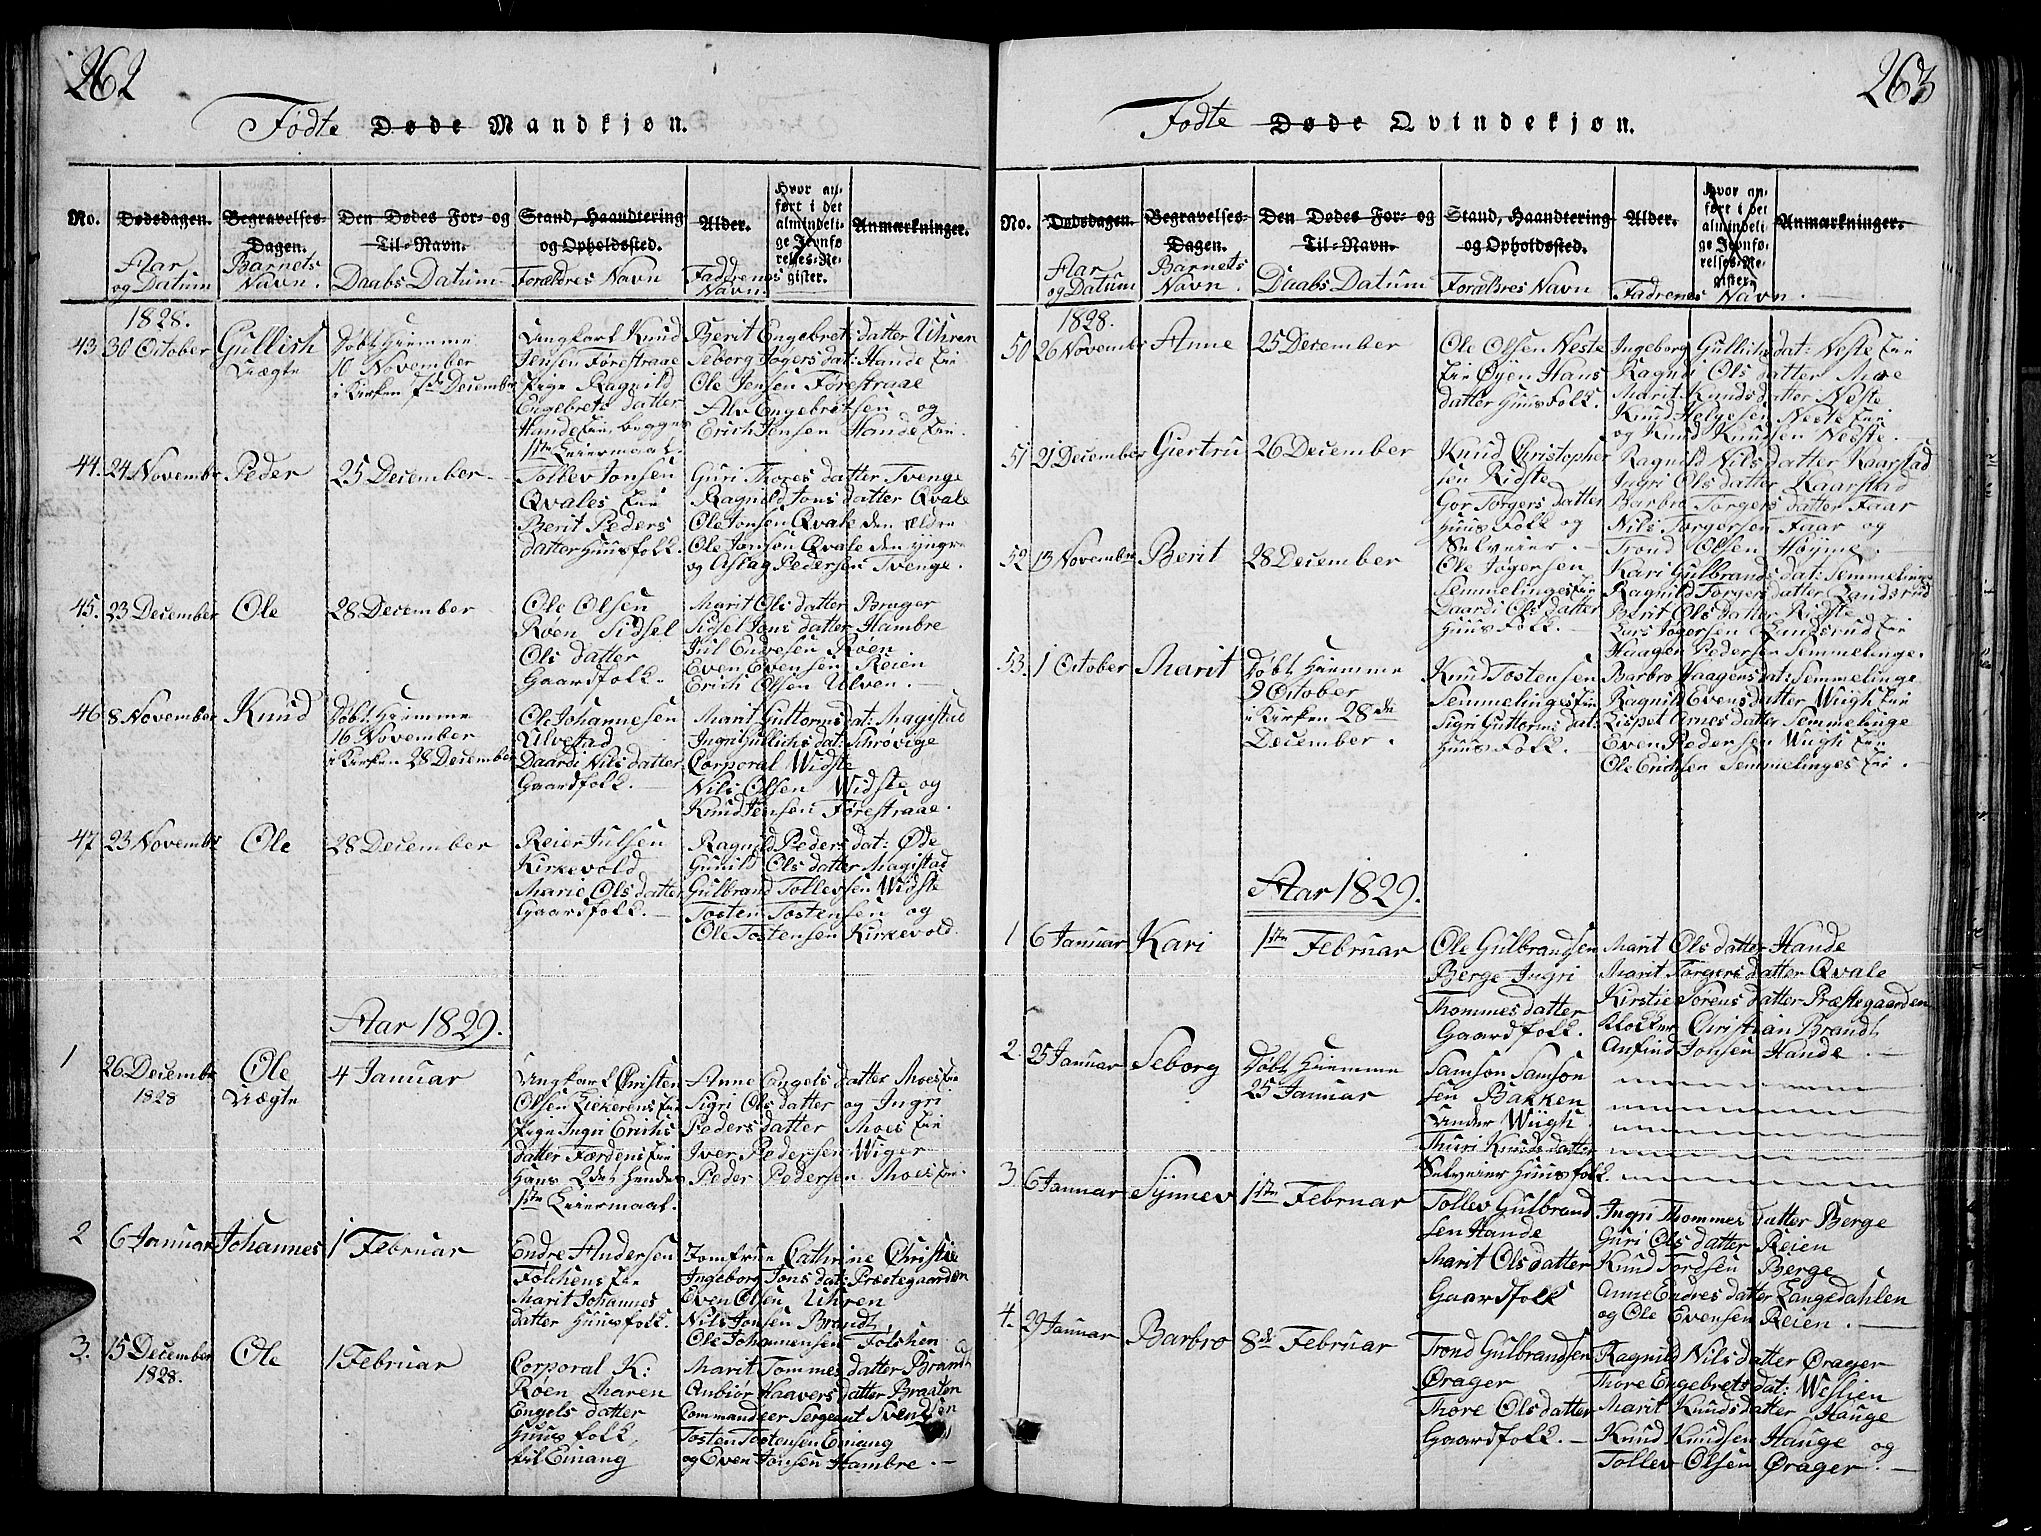 262
Fødte Døde Mandkjøn.
No.
Dødsdagen.
Aar
og Datum
Begravelses-
Dagen.
Barnets
Navn.
Den Dødes For- og
Til-Navn.
Daabs Datum
Stand, Haandtering
og Opholdssted.
Forældres Navn
Alder.
Faddrenes
Navn.
Hvor an-
ført i det
almindeli-
ge Jevnfø
relses-Re-
gister.
Anmærkninger.
1828.
43 30 October
Gullich
Uægte
Døbt Hiemme
10 November
i Kirken 7de December
Ungkarl Knud
Jensen Førestraae
Pige Ragnild
Engebrets datter
Hande Eie, begges
1ste Leiermaal.
Berit Engebrets datter Uhren
Seborg Jøgers dat: Hande Eie
Ole Jensen Førestraae
Alv Engebretsen og
Erich Jensen Hande Eie.
44. 24 November
Peder
25 December
Tollev Jonsen
Qvales Eie
Berit Peders
datter Huusfolk.
Guri Thores datter Tvenge
Ragnild Jons datter Qvale
Ole Jonsen Qvale den ældre
Ole Jonsen Qvale den yngre
og Aslag Pedersen Tvenge.
45. 23 December
Ole
28 December
Ole Olsen
Røen Sidsel
Ols datter
Gaardfolk.
Marit Ols datter Brager
Sidsel Jons datter Hambre
Jul Endresen Roen
Even Evensen Reien
Erich Olsen Ulven.
46 8 November
Knud
Døbt Hiemme
16 November
i Kirken 28 December
Ole Johannesen
Ulvestad
Daardi Nils datter
Gaardfolk.
Marit Guttorms dat: Magistad
Ingri Gullichs dat: Schrøvige
Corporal Widste
Nils Olsen Widste og
Knud Jensen Førestraae.
47. 23 November
Ole
28 December
Reier Julsen
Kirkevold
Marie Ols datter
Gaardfolk.
Ragnild Peders dat: Øde
Gunild Ols datter Magistad
Gulbrand Tollevsen Widste
Tosten Tostensen og
Ole Tostensen Kirkevold.
Aar 1829.
1 26 December
1828
Ole
Uægte
4 Januar
Ungkarl Christen
Olsen Ziekerens Eie
Pige Ingri Erichs
datter Færdens Eie
Hans 2det Hendes
1ste Leiermaal.
Anne Engels datter Moes Eie
Sigri Ols datter og Ingri
Peders datter Moes Eie
Iver Pedersen Wiger
Peder Pedersen Moes Eie.
2 6 Januar
Johannes
1 Februar
Endre Andersen
Følchens Eie
Marit Johannes
datter Huusfolk.
Jomfrue Cathrine Christie
Ingeborg Jons dat: Præstegaarden
Even Olsen Uhren
Nils Jonsen Brandt
Ole Johannensen Følshen
3. 15 December
1828.
Ole
1 Februar
Corporal K:
Røen Maren
Engels datter
Huusfolk,
til Einang
Marit Tommes datter Brandt
Anbiør Haavers datter Braaten
Commandeer Sergeant Svendsen
Tosten Tostensen Einang
og Even Jonsen Hambre.
263
Fødte Døde Qvindekjøn.
No.
Dødsdagen.
Aar
og Datum
Begravelses-
Dagen.
Barnets
Navn.
Den Dødes For- og
Til-Navn.
Daabs Datum
Stand, Haandtering
og Opholdssted.
Forældres Navn
Alder.
Fadrenes Navn.
Hvor an-
ført i det
almindeli-
ge Jevnfø-
relses-Re-
gister.
Anmærkninger.
1828.
50 26 November
Anne
25 December
Ole Olsen Neste
Eie Øyen Hans
datter Huusfolk.
Ingeborg Gullichs dat: Neste Eie
Ragndi Ols datter Moe
Marit Knuds datter Neste
Knud Helgesen Neste Eie
og Knud Knudsen Neeste.
51 21 December
Giertru
26 December
Knud Christopher
sen Ridste
Gor Torgers datter
Huus Folk og
Selveier.
Ragnild Nils datter Kaarstad
Ingri Ols datter Kaarstad
Barbro Torgers datter Faar
Nils Torgersen Faar og
Trond Olsen Høyme.
52 13 November
Berit
28 December
Ole Jøgersen
Semmelinges Eie
Daardi Ols datter
Huus Folk.
Kari Gulbrands dat: Semmelinge
Ragnild Torgers datterЛандsrud
Berit Ols datter Ridste
Lars Jøgersen Landsrud Eie
Haagen Pedersen Semmelinge.
53. 1 October
Marit
Døbt Hiemme
9 October
i Kirken 28de
December.
Knud Tostensen
Semmelinges Eie
Sigri Guttorms dat:
Huus Folk.
Barbro Haagens dat: Semmelinge
Ragnild Evens datter Wiigh Eie
Lispet Arnes datter Semmelinge
Even Pedersen Wiigh Eie
Ole Erichsen Semmelinges Eie.
Aar 1829.
1 6 Januar
Kari
1ste Februar
Ole Gulbrandsen
Berge Ingri
Thommes datter
Gaardfolk.
Marit Ols datter Hande
Marit Torgers datter Qvale
Kirstie Sorens datter Præstegaarden
Klokker Christian Brandt
Anfind Jonsen Hande.
2. 25 Januar
Seborg
Døbt Hiemme
25 Januar
Samson Samson
sen Bakken
Under Wiigh
Thuri Knuds datter
Selveier Huusfolk.
3 6 Januar
Synnev
1ste Februar
Tollev Gulbrand
sen Hande
Marit Ols datter
Gaardfolk
Ingri Thommes datter Berge
Guri Ols datter Reien
Knud Tordsen Berge
Anne Endres datter Langedahlen
og Ole Evensen Reien.
4. 29 Januar
Barbro
8de Februar
Trond Gulbrandsen
Ørager
Thore Ols datter
Gaardfolk.
Ragnild Nils datter Ørager
Thore Engebrets dat: Weslien
Marit Knuds datter Hauge
Knud Knudsen Hauge og
Tollev Olsen Ørager.